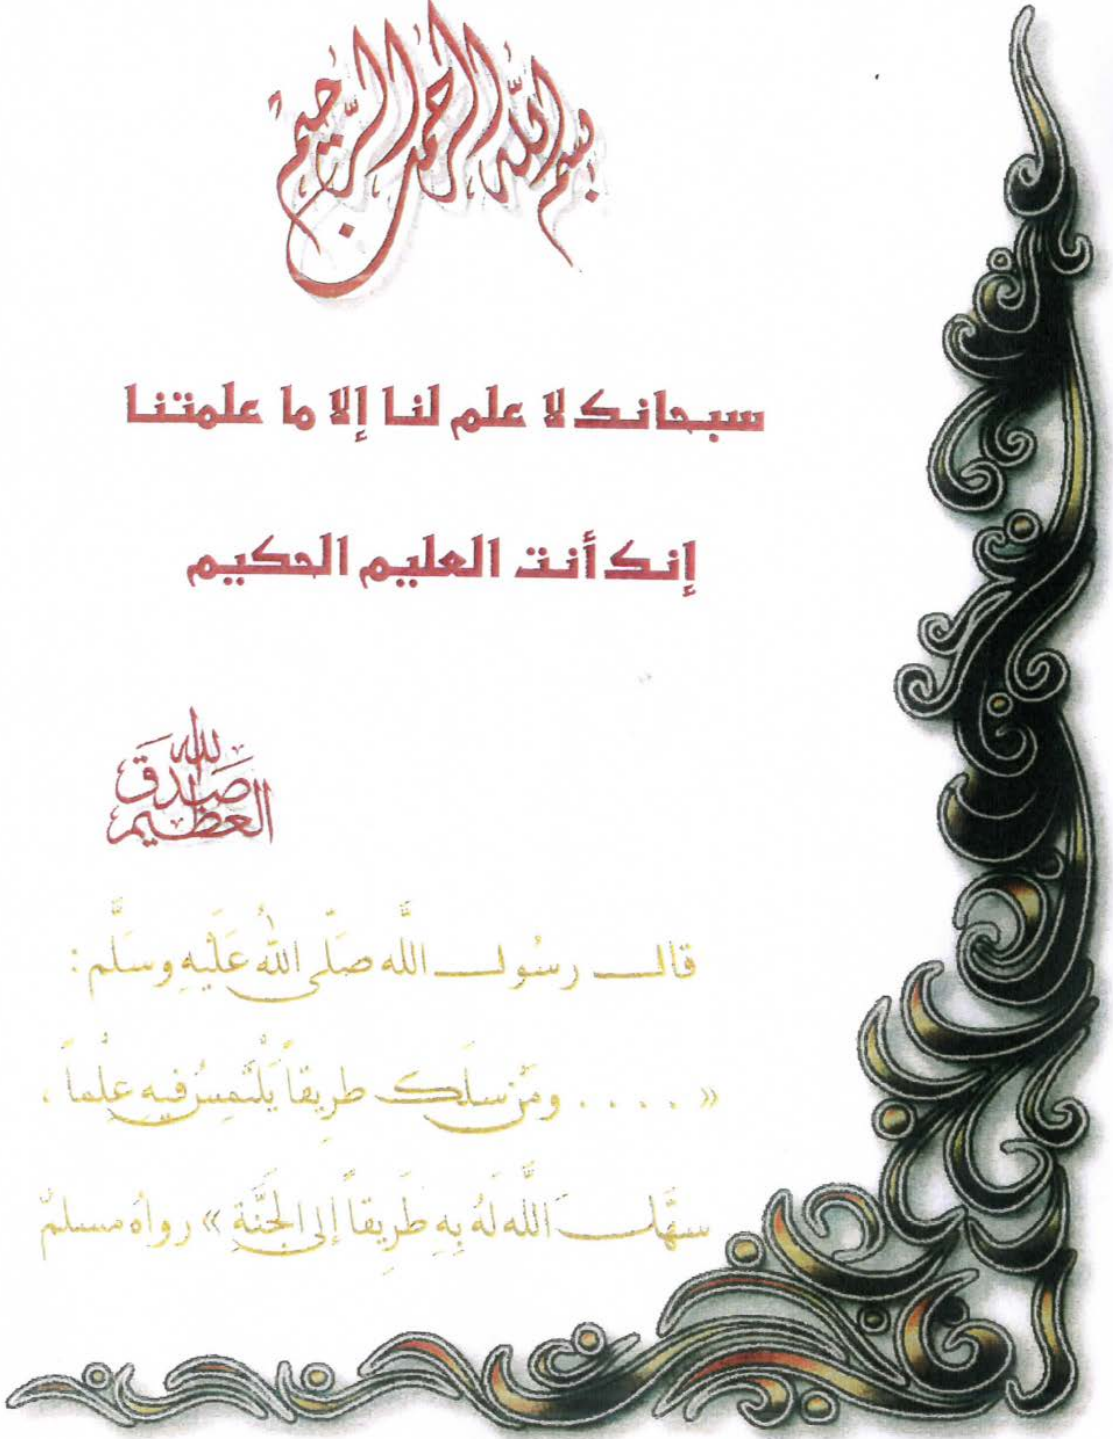 بسم الله الرحمن الرحيم
سبحانك لا علم لنا إلا ما علمتنا
إنك أنت العليم الحكيم
صدق الله العظيم
قال رسُول اللَّه صَلَّى اللهُ عَلَيْهِ وسَلَّم :
« ..... ومَنْ سلَك طرِيقاً يَلْتَمِسُ فيهِ عِلْماً ،
سهَّلَ اللَّه لَهُ بِهِ طَرِيقاً إلى الجَنَّةِ » رواهُ مسلمٌ